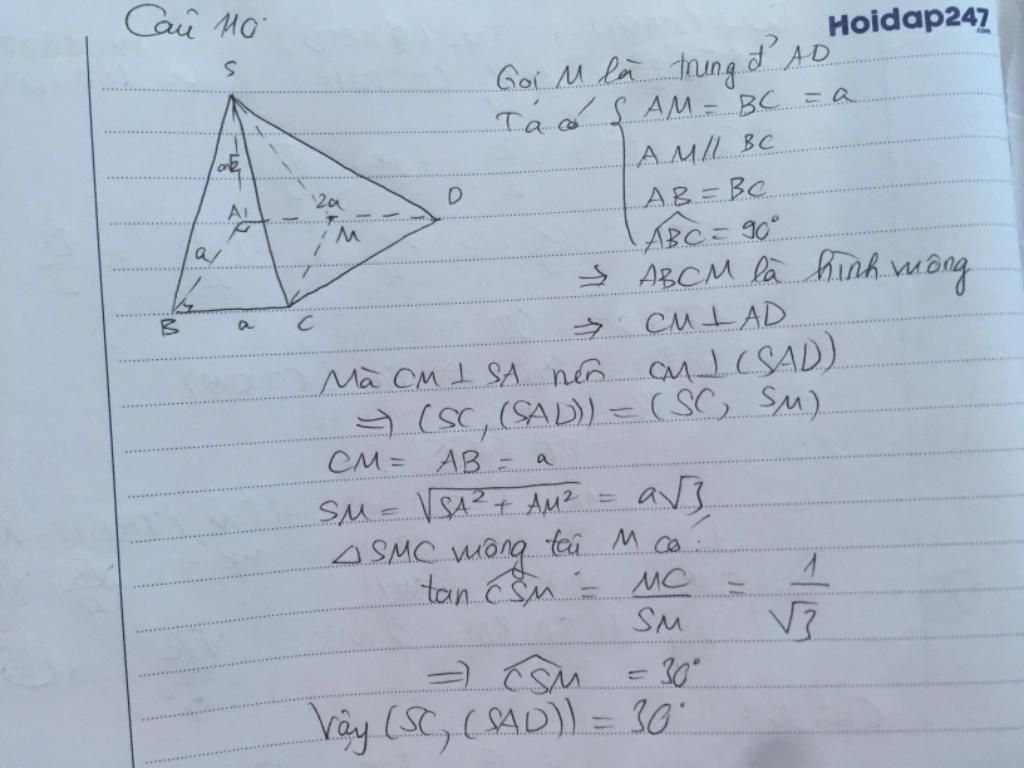 Hoidap247
.com
Câu 110
S
a√2
A
2a
D
M
a
B
a
C
Gọi M là trung đ' AD
Ta có { AM = BC = a
AM // BC
AB = BC
ABC = 90°
⇒ ABCM là hình vuông
⇒ CM ⊥ AD
Mà CM ⊥ SA nên CM ⊥ (SAD)
⇒ (SC, (SAD)) = (SC, SM)
CM = AB = a
SM = √(SA² + AM²) = a√3
△SMC vuông tại M có:
tan CSM = MC/SM = 1/√3
⇒ CSM = 30°
Vậy (SC, (SAD)) = 30°